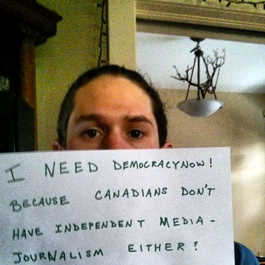 I NEED DEMOCRACYNOW!
BECAUSE CANADIANS DON'T
HAVE INDEPENDENT MEDIA-
JOURNALISM EITHER!